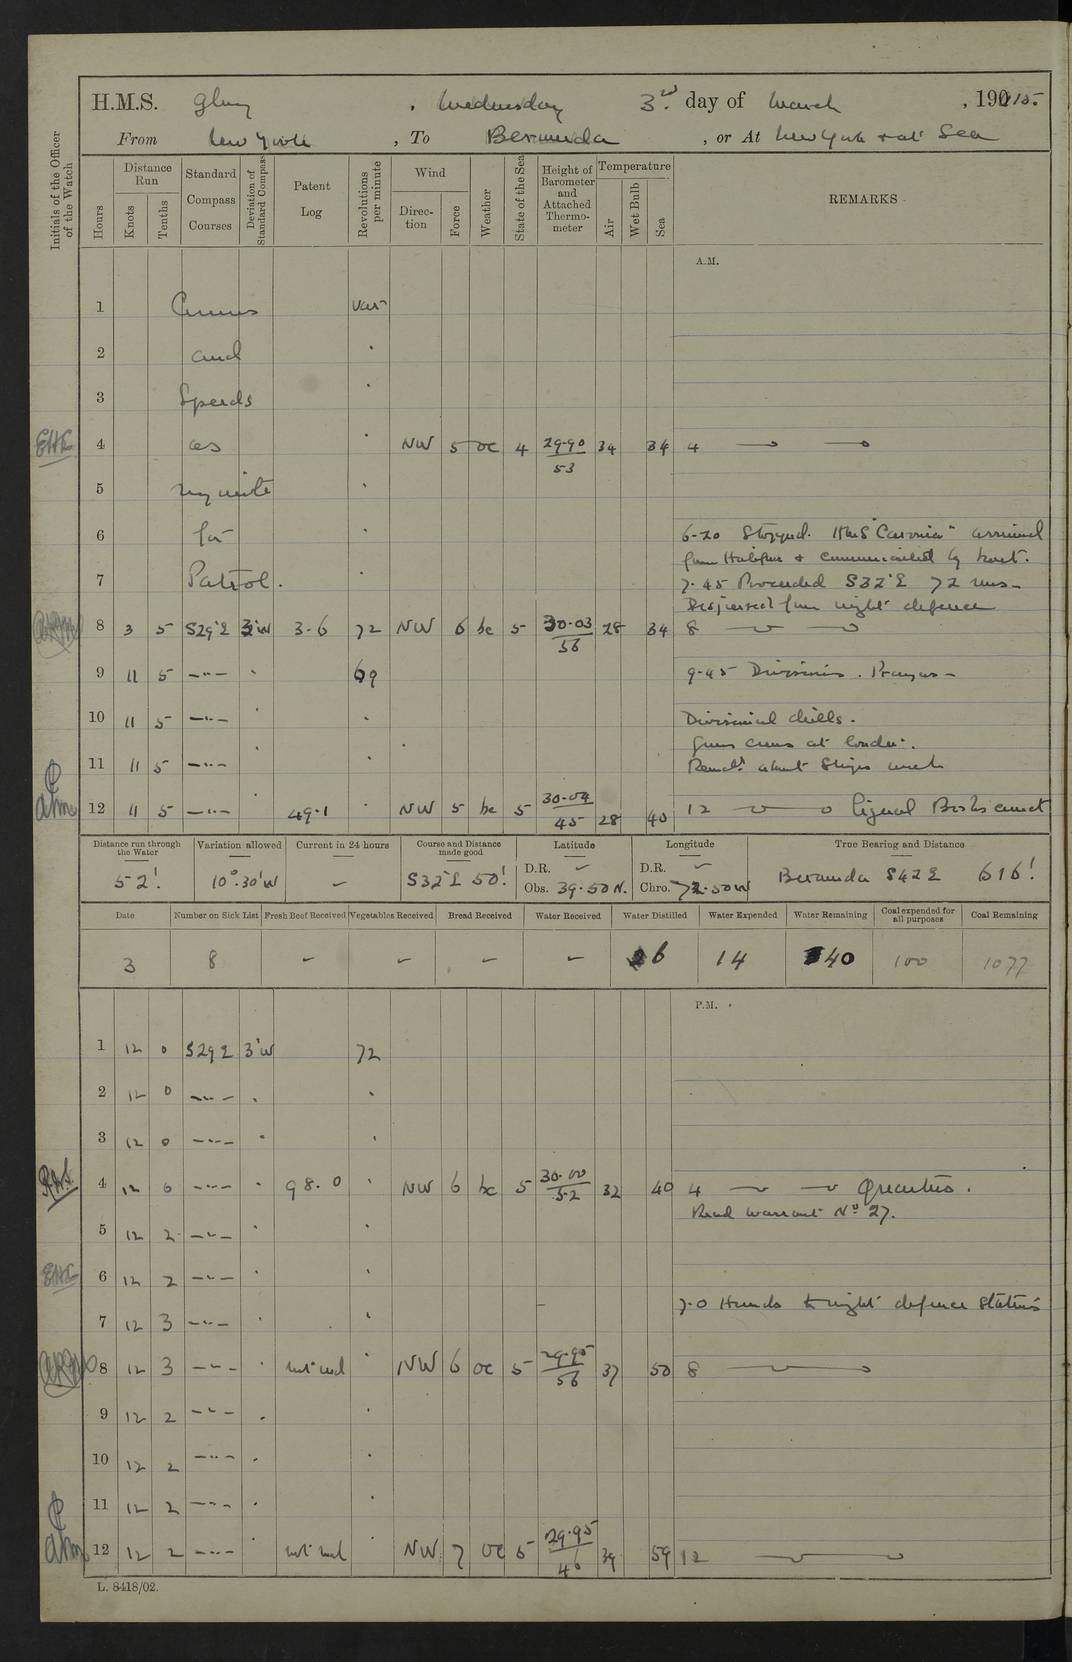 H.M.S. Glory, Wednesday 3rd day of March, 1901915.
From New York, To Bermuda, or At New York & at Sea
Initials of the Officer of the Watch
Hours
Distance Run
Knots
Tenths
Standard Compass Courses
Deviation of Standard Compass
Patent Log
Revolutions per minute
Wind
Direction
Force
Weather
State of the Sea
Height of Barometer and Attached Thermometer
Temperature
Air
Wet Bulb
Sea
REMARKS
A.M.
1 Courses var
2 and
3 Speeds
4 as NW 5 oc 4 29.90 53 34 34 4
5 requisite
6 for
6-20 Stopped. HMS "Caronia" arrived
from Halifax & communicated by boat.
7 Patrol.
7.45 Proceeded S32°E 72 revs
Dispersed from night defence
8 3 5 S29°E 3°W 3.6 72 NW 6 bc 5 30.03 56 28 34 8
9 11 5 —"— 69 9-45 Divisions. Prayers
10 11 5 —"— Divisional drills.
Guns crews at loader.
11 11 5 —"— Remdr about Ships work
12 11 5 —"— 49.1 NW 5 bc 5 30.04 45 28 40 12
Distance run through the Water
52'.
Variation allowed
10°.30'W
Current in 24 hours
—
Course and Distance made good
S32°E 50'.
Latitude
D.R. —
Obs. 39.50 N.
Longitude
D.R. —
Chro. 72.50 W
True Bearing and Distance
Bermuda S42E 616'
Date
Number on Sick List
Fresh Beef Received
Vegetables Received
Bread Received
Water Received
Water Distilled
Water Expended
Water Remaining
Coal expended for all purposes
Coal Remaining
3 8 — — — — 26 14 40 100 1077
P.M.
1 12 0 S29E 3°W 72
2 12 0 —"—
3 12 0 —"—
4 12 0 —"— 98.0 NW 6 bc 5 30.00 52 32 40 4 Quarters.
Read warrant No 27.
5 12 2 —"—
6 12 2 —"—
7.0 Hands to night defence stations
7 12 3 —"—
8 12 3 —"— not recd NW 6 oc 5 29.95 56 37 50 8
9 12 2 —"—
10 12 2 —"—
11 12 2 —"—
12 12 2 —"— not recd NW 7 oc 5 29.95 46 39 59 12
L. 8418/02.